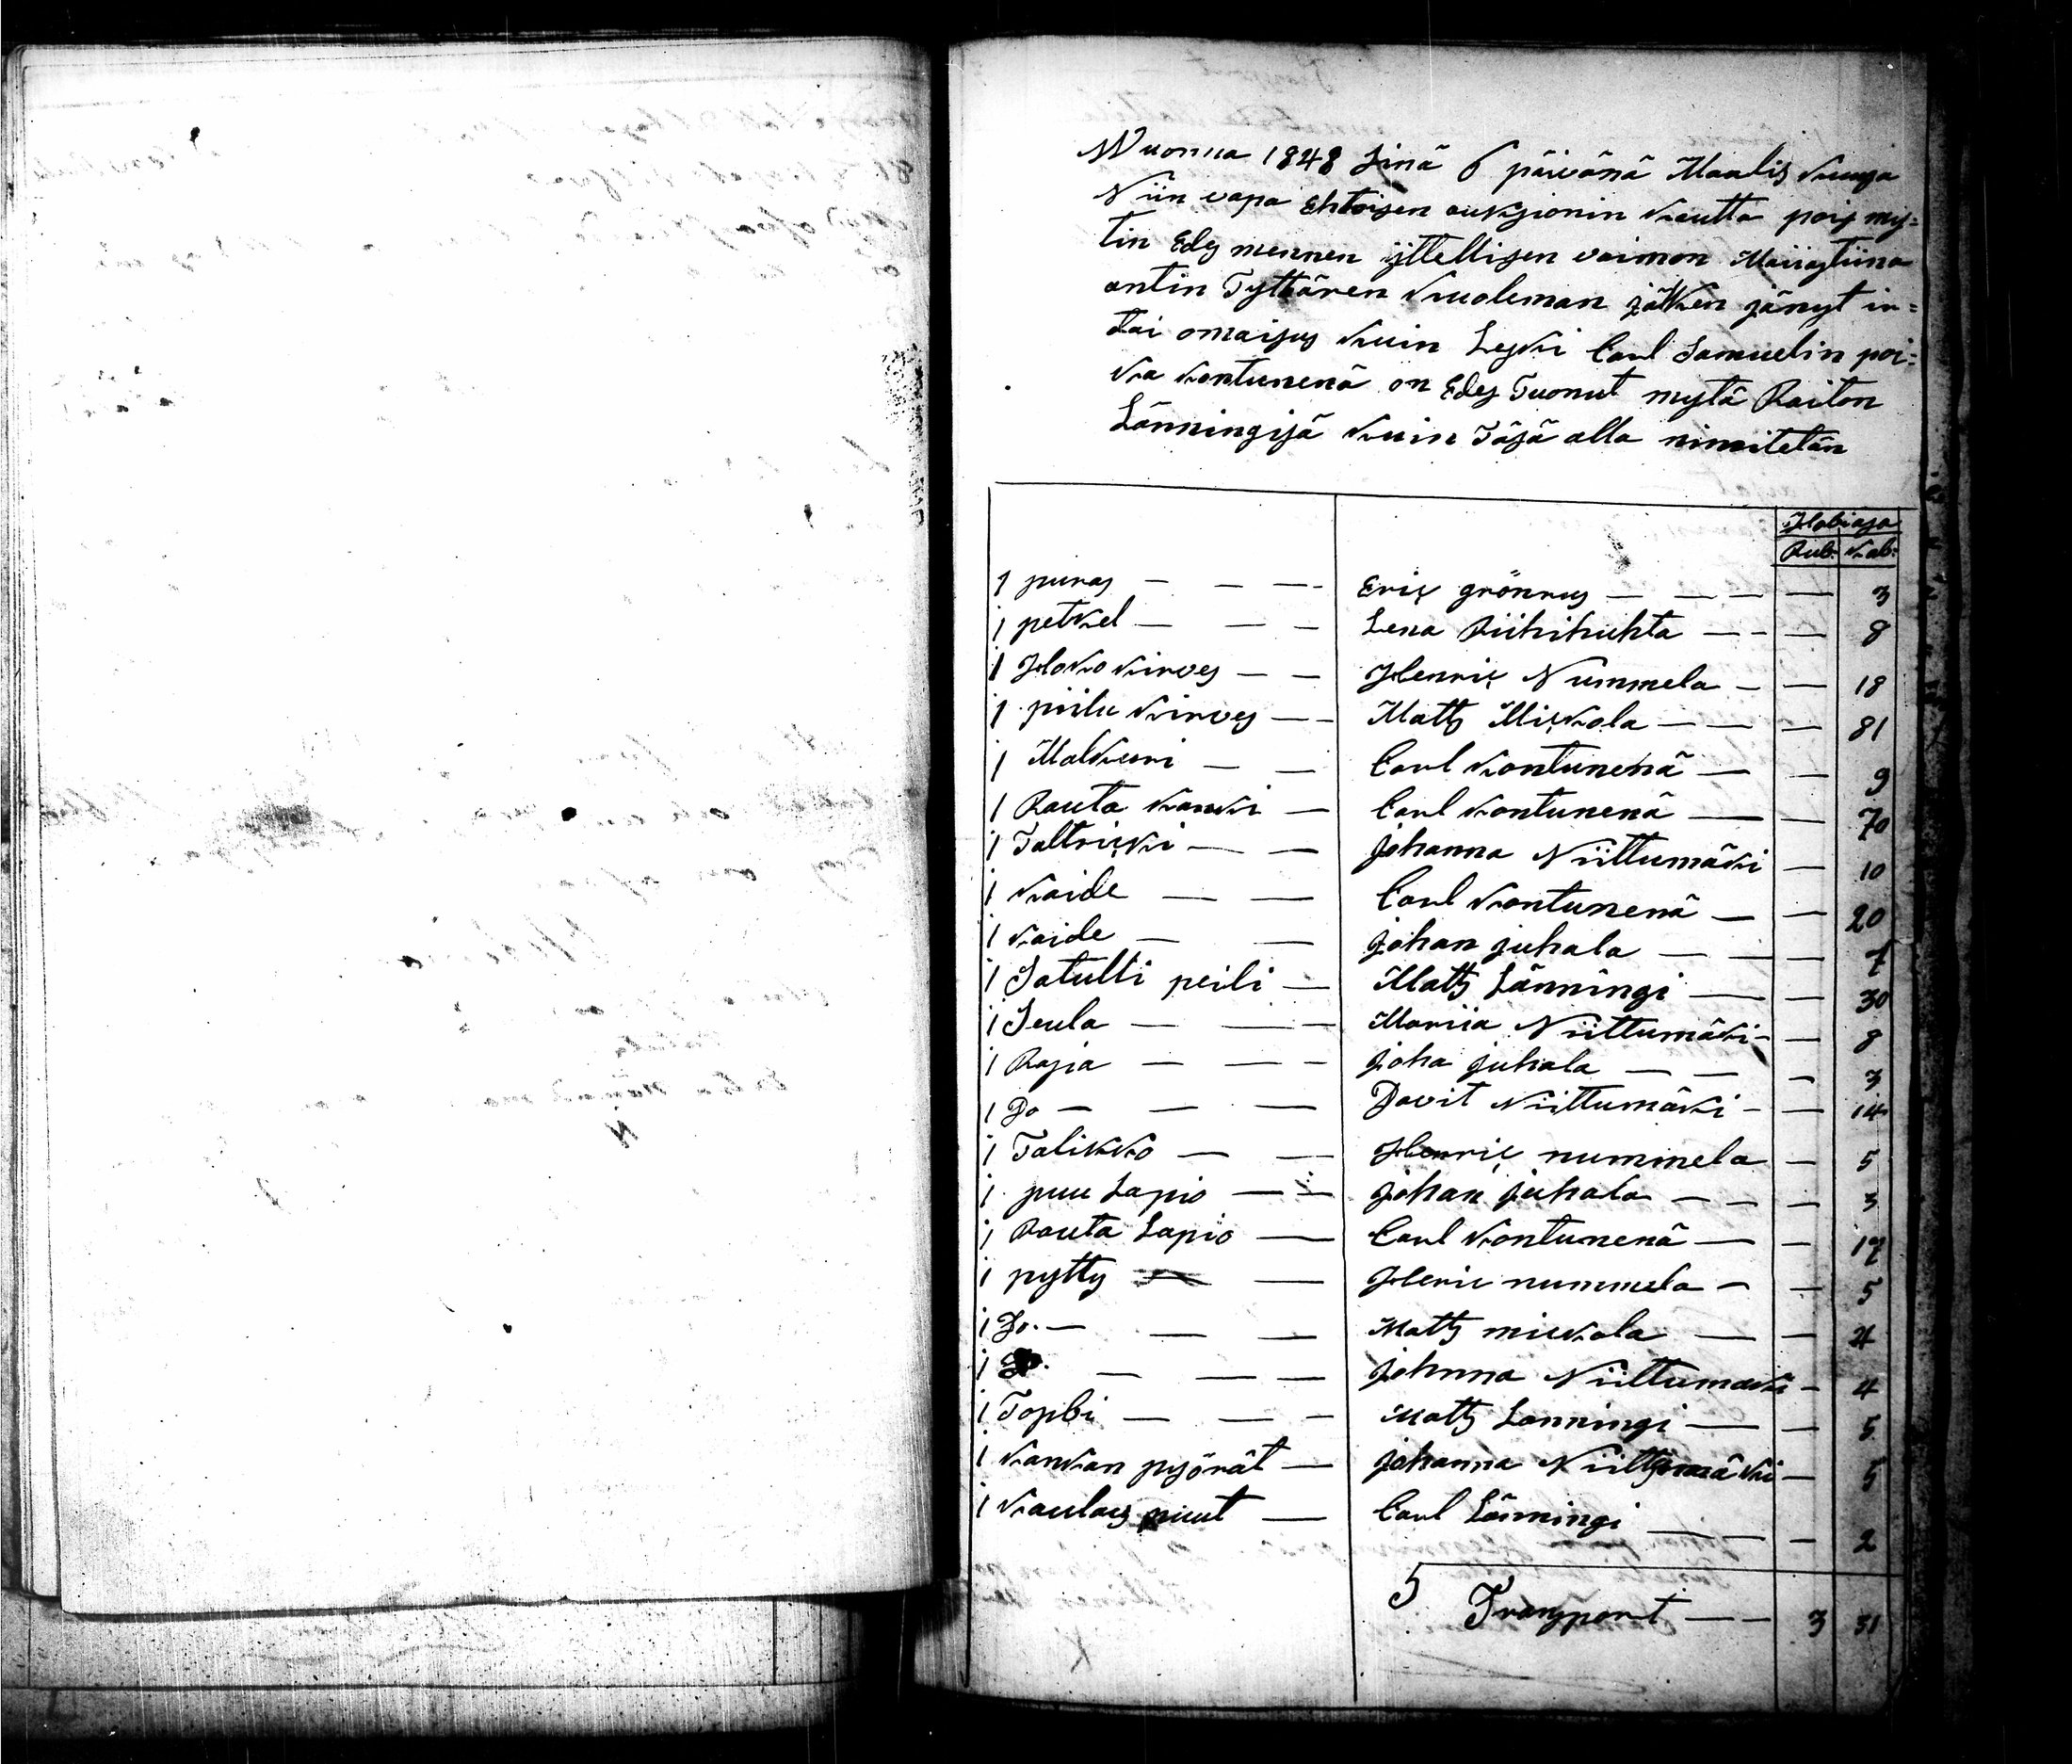 Wuonna 1848 Sinä 6 päivänä Maalis kuuṣa
Niin vapa Ehtoisen auksionin kautta pois my=
tin Edes mennen ijttellisen vaimon Maijastiina
antin Tyttären kuoleman jälken jänyt ir=
tai omaisus kuin Leski Carl Samuelin poi=
ka kontunenä on Edes Tuonut mytä Raiton
Länningisä kuin Täsä alla nimitetän
Hobiasa
Rub: kab:
1 puras — — — Eric grönrus — — — — 3
1 petkel — — — Lena Riihihuhta — — — 8
1 Hako kirves — — Henric Nummela — — 18
1 piilu kirves — — Matts Mickola — — — 81
1 Malkuri — — Carl kontunenä — — 9
1 Rauta kanki — Carl kontunenä — — 70
1 Taltricki — — Johanna Niittumäki — 10
1 kaide — — Carl kontunenä — — 20
1 kaide — — Johan juhala — — — 7
1 Satulli peili — Matts Länningi — — 30
1 Seula — — Mariia Niittumäki — — 8
1 Rasia — — — Joha juhala — — — 3
1 Do — — — Davit Niittumäki — — 14
1 Talikko — — Henric nummela — 5
1 puu Lapio — — Johan juhala — — — 3
1 Rauta Lapio — Carl kontunenä — — 17
1 pytty — — Heric nummela — — 5
1 Do. — — — Matts mickola — — 4
1 Do. — — — Johnna Niittumäki — 4
1 Topbi — — — Matts Lanningi — — 5
1 kankan pyörät — Johanna Niittumäki — 5
1 kaulaus puut — Carl Länningi — — — 2
5 Transport — — 3 31